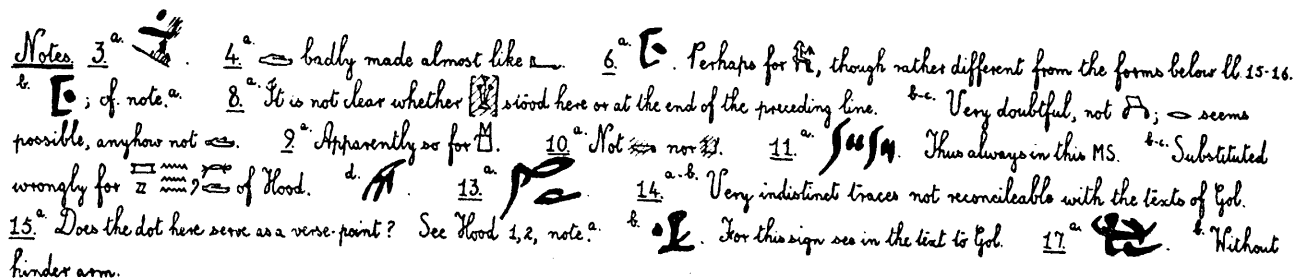 Notes. 3.a. . 4.a. badly made almost like . 6.a. . Perhaps for , though rather different from the forms below ll. 15-16.
b. ; cf. note.a. 8.a. It is not clear whether stood here or at the end of the preceding line. b-c. Very doubtful, not ; seems
possible, anyhow not . 9.a. Apparently so for . 10.a. Not nor . 11.a. . Thus always in this MS. b-c. Substituted
wrongly for of Hood. d. 13.a. . 14.a-b. Very indistinct traces not reconcileable with the texts of Gol.
15.a. Does the dot here serve as a verse-point? See Hood 1,2, note.a. b. . For this sign see in the text to Gol. 17.a. . b. Without
hinder arm.